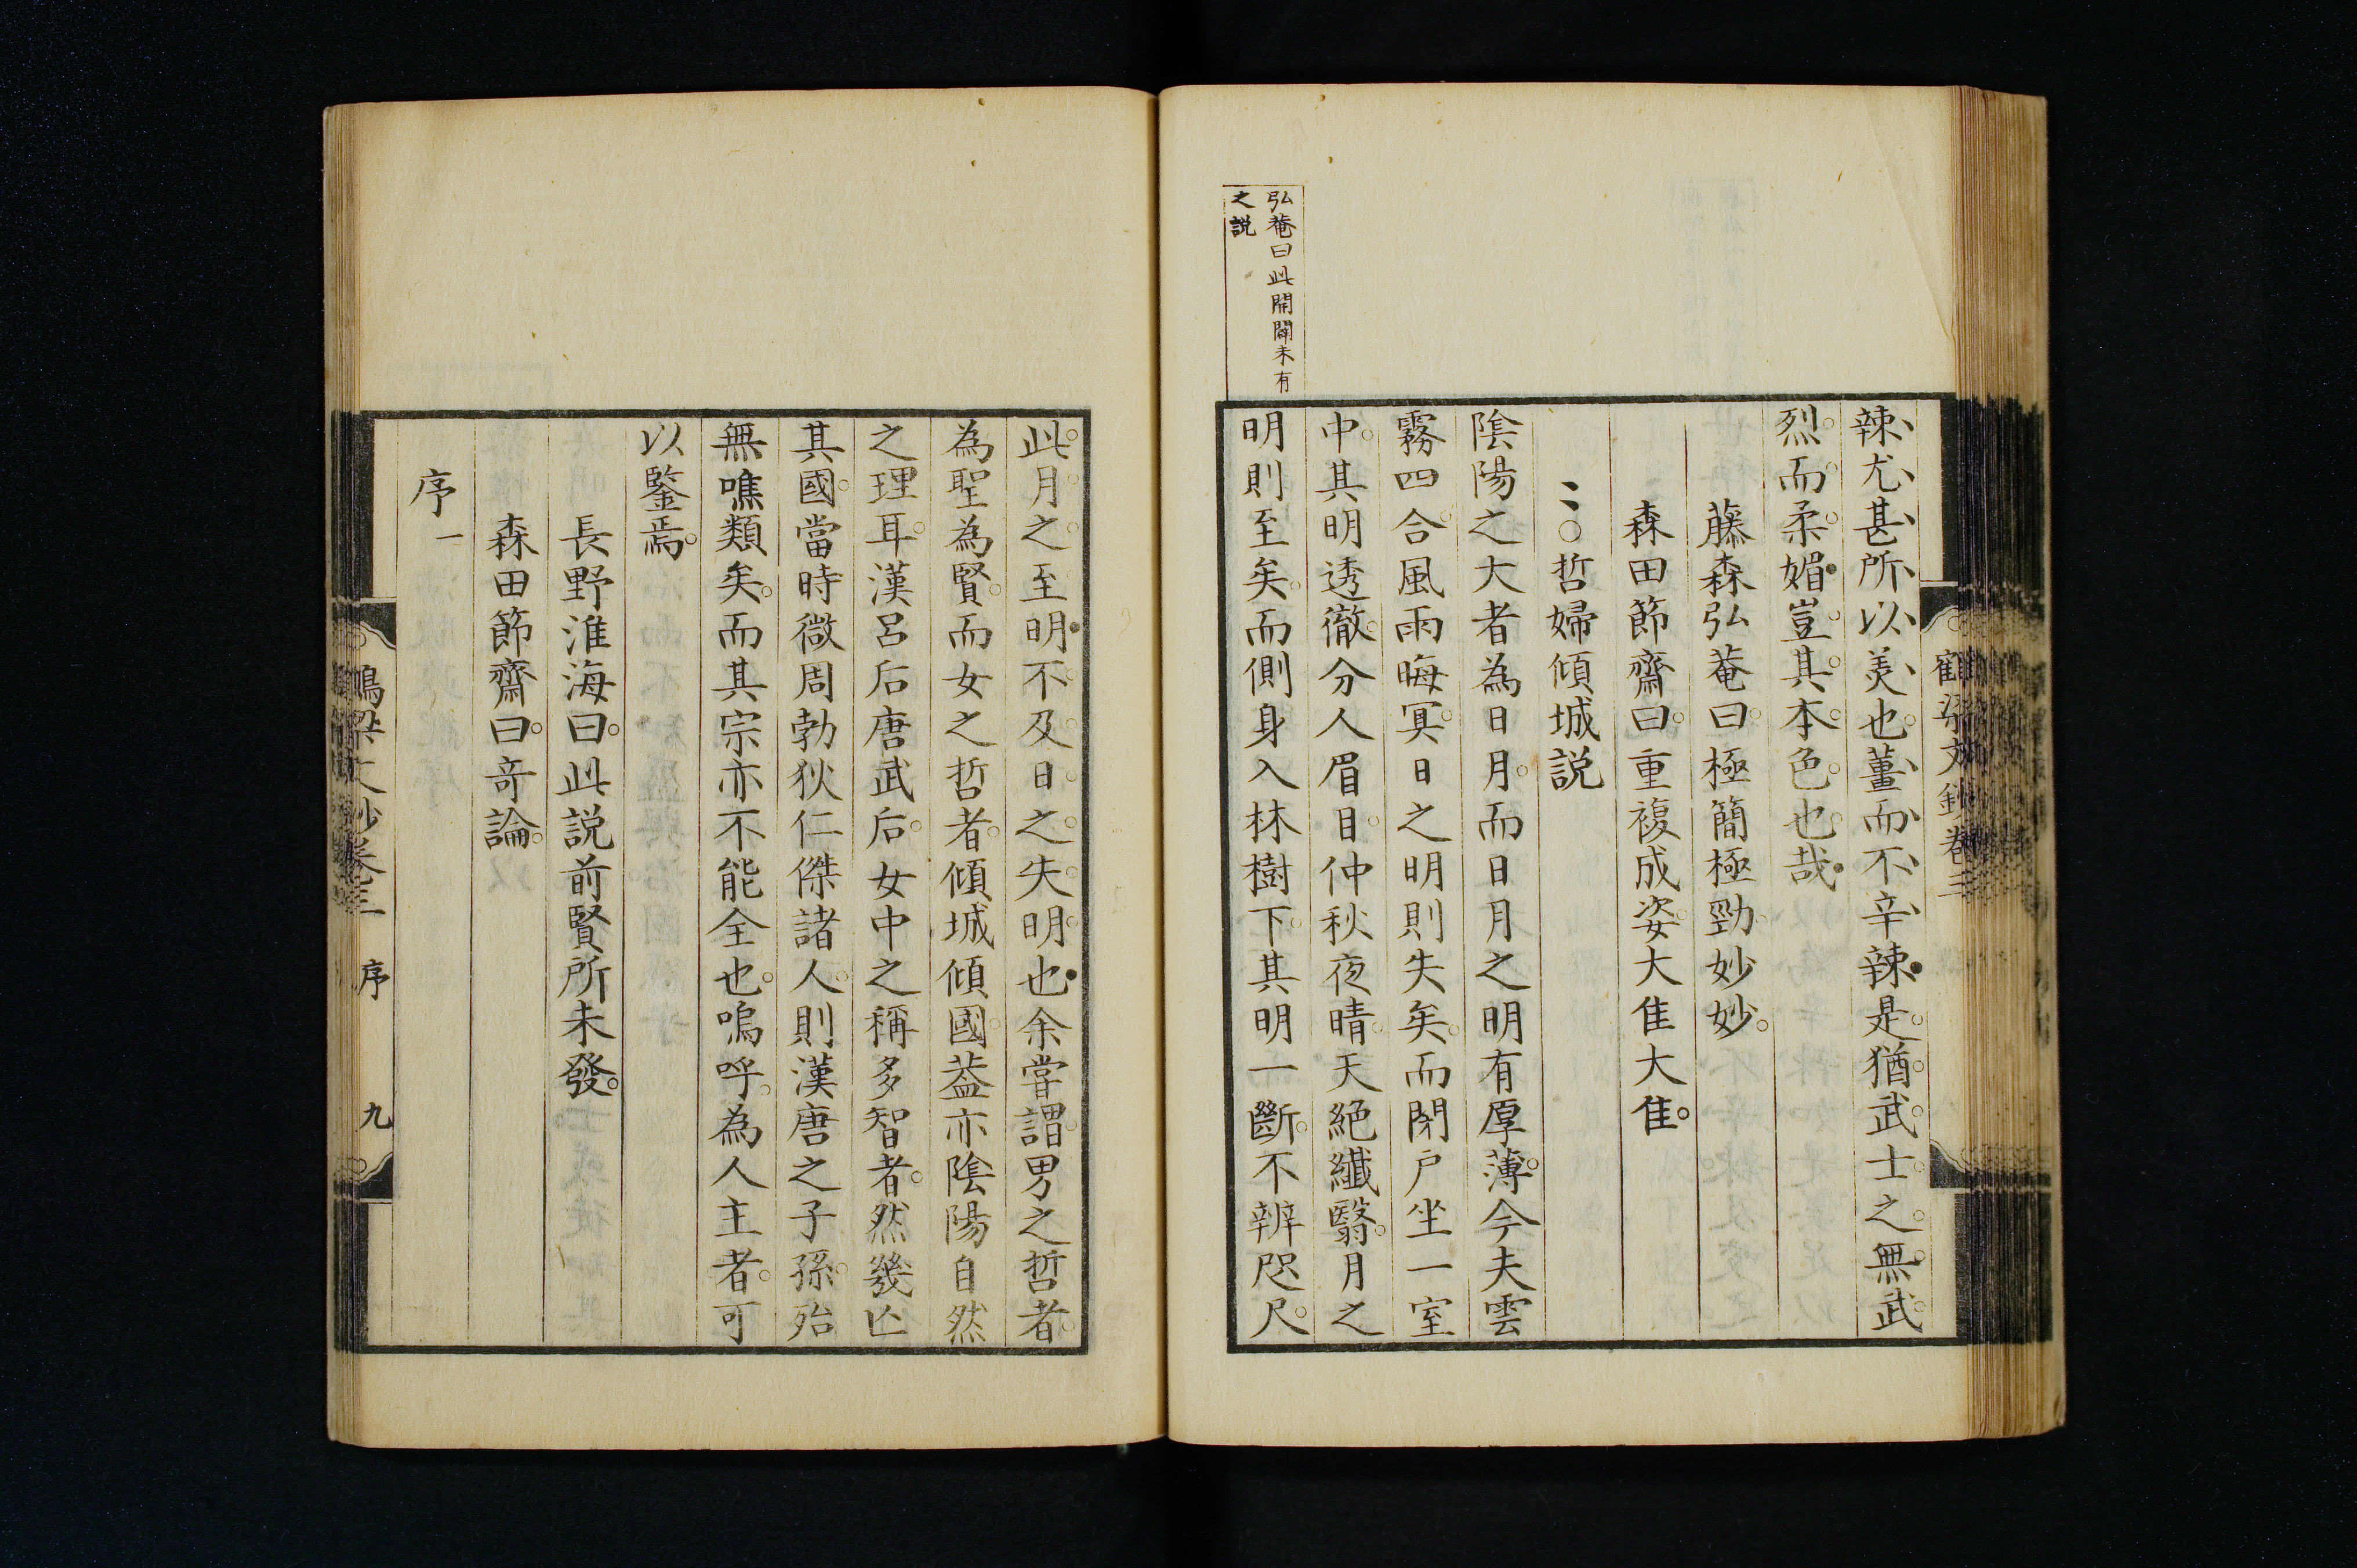 辣尤甚所以美也薑而不辛辣是猶武士之無武
烈而柔媚豈其本色也哉
藤森弘菴曰極簡極勁妙妙
森田節齋曰重複成姿大佳大佳
〻○哲婦傾城説
陰陽之大者為日月而日月之明有厚薄今夫雲
霧四合風雨晦冥日之明則失矣而閉戸坐一室
中其明透徹分人眉目仲秋夜晴天絶纖翳月之
明則至矣而側身入林樹下其明一斷不辨咫尺
弘菴曰此開闢未有
之説
此月之至明不及日之失明也余嘗謂男之哲者
為聖為賢而女之哲者傾城傾國葢亦陰陽自然
之理耳漢呂后唐武后女中之稱多智者然幾亾
其國當時微周勃狄仁傑諸人則漢唐之子孫殆
無噍類矣而其宗亦不能全也嗚呼為人主者可
以鑒焉
長野淮海曰此説前賢所未發
森田節齋曰奇論
序一
鶴梁文鈔卷三 序 九